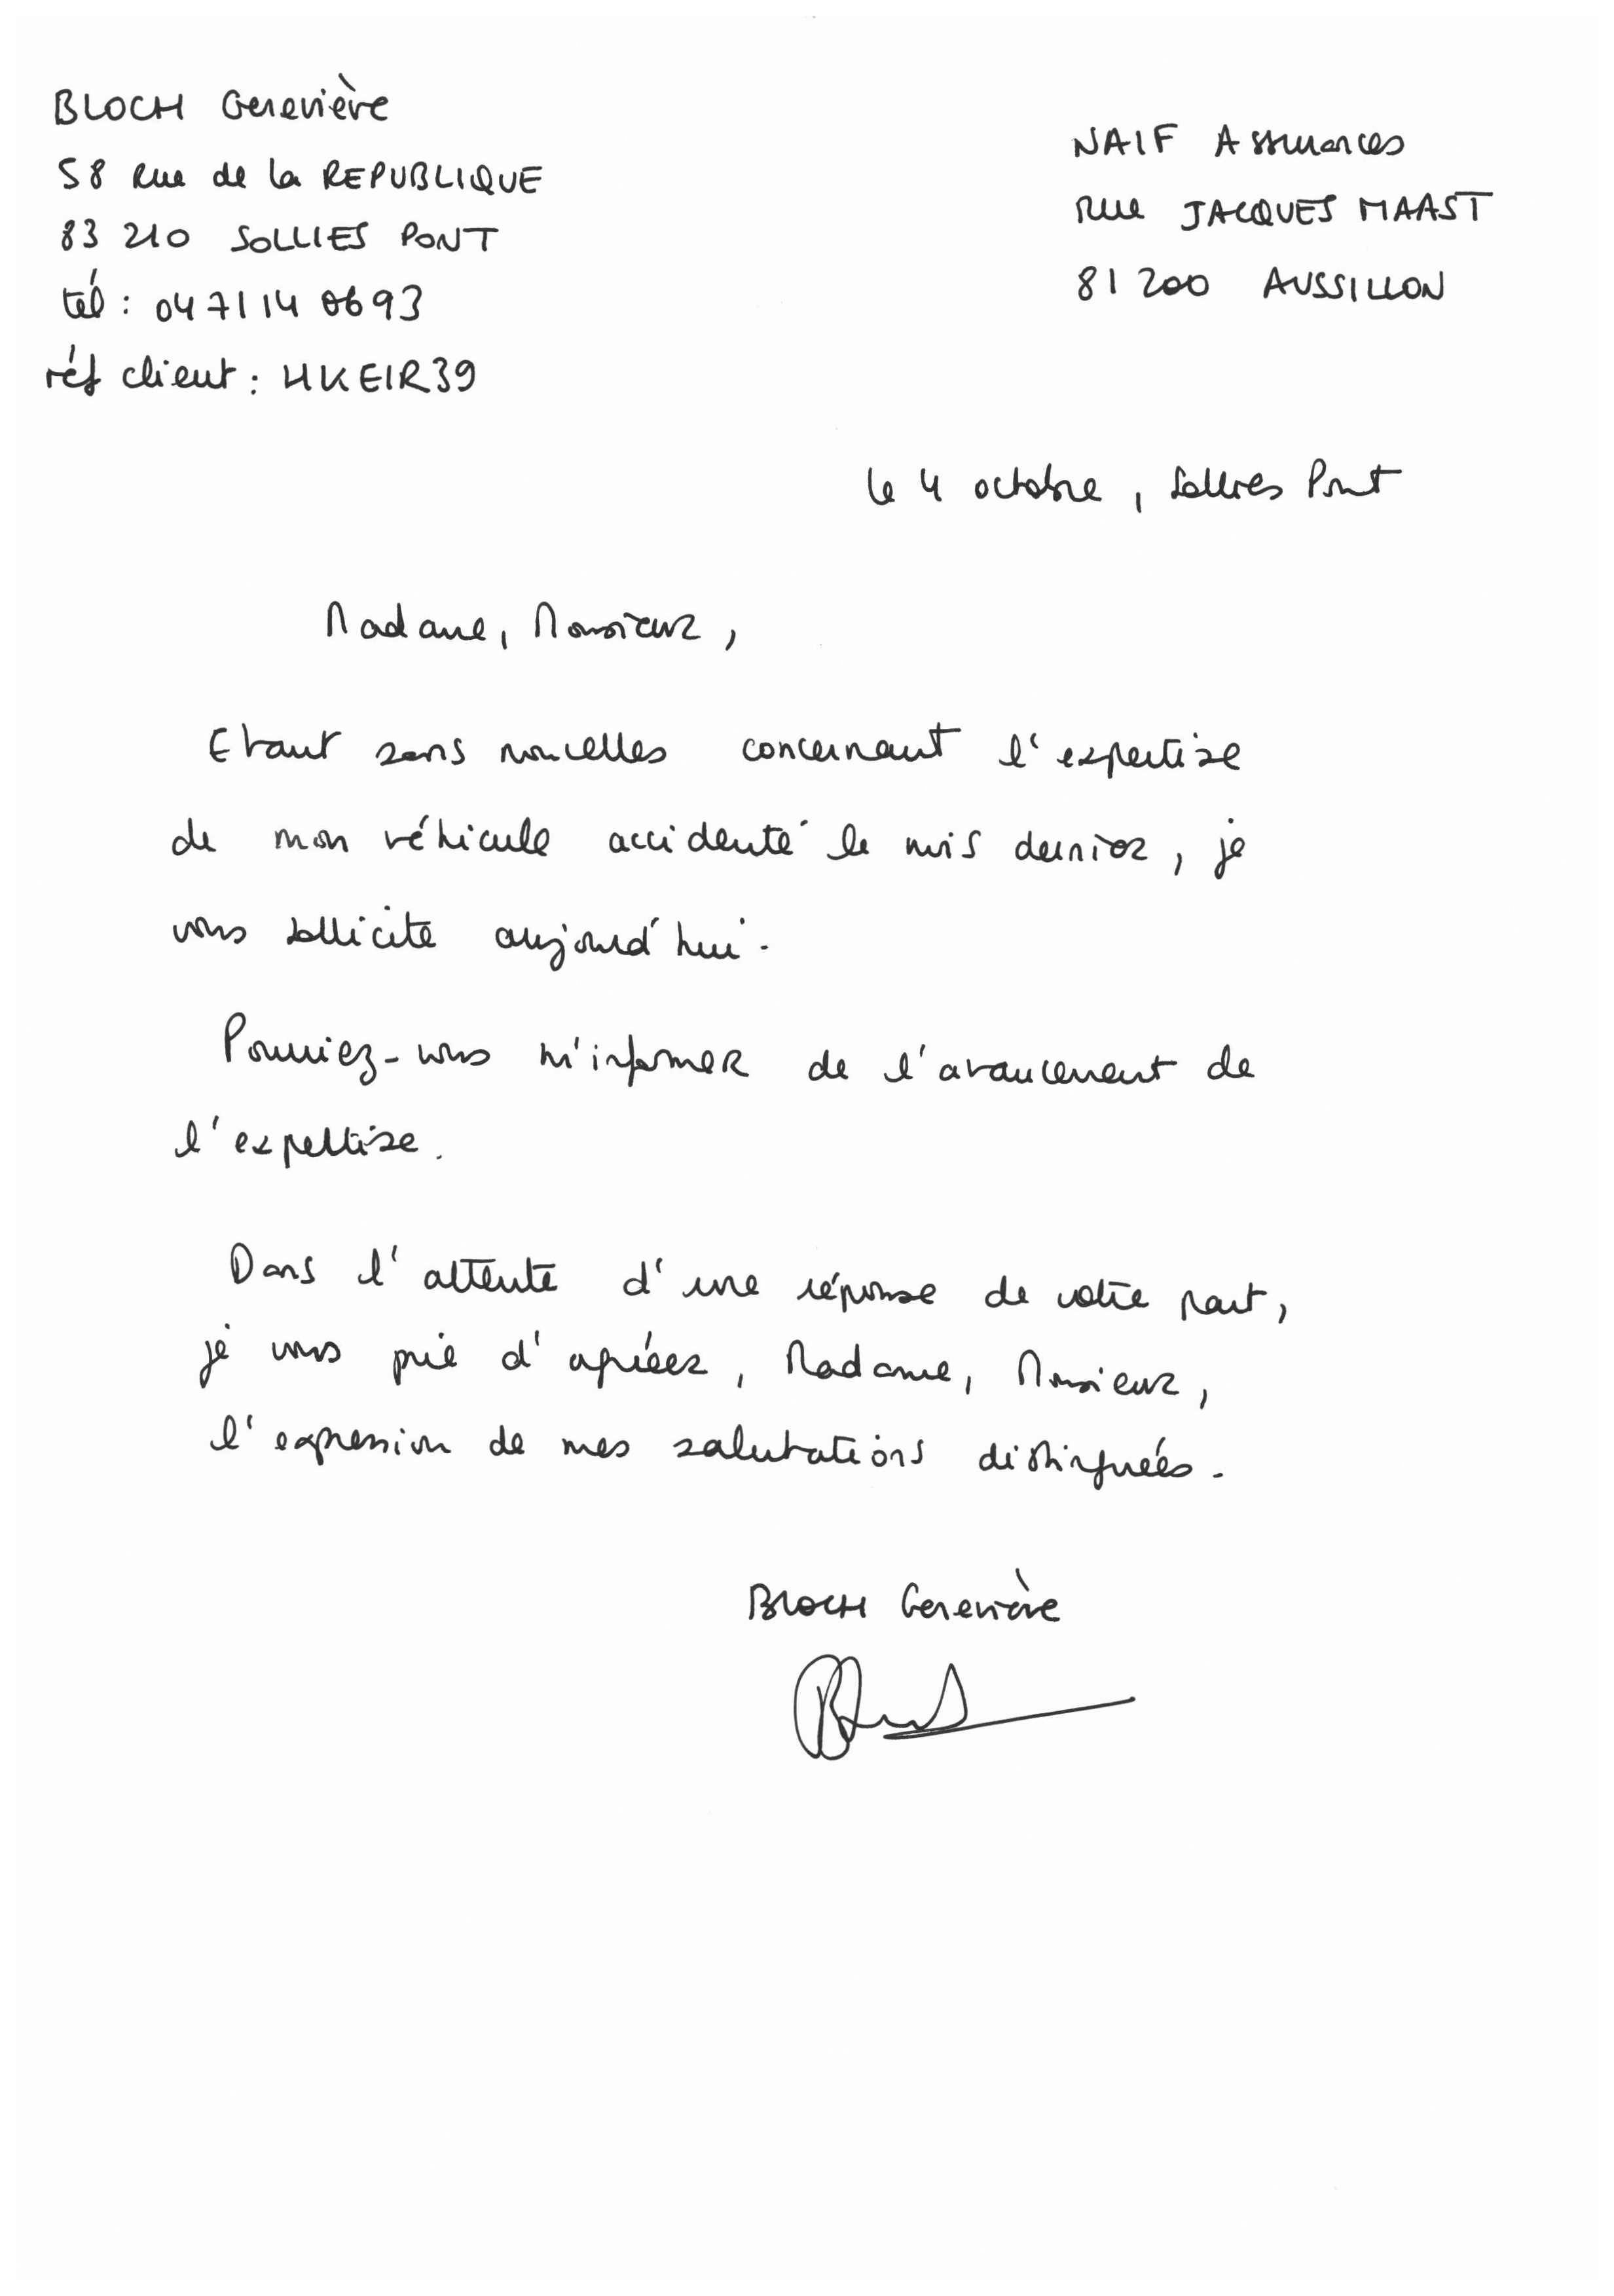 BLOCH Geneviève
58 Rue de la REPUBLIQUE
83 210 SOLLIES PONT
tél : 04 71 14 06 93
réf client : HKEIR39
NAIF Assurances
Rue JACQUES MAAST
81 200 AUSSILLON
le 4 octobre, Sollies Pont
Madame, Monsieur,
Etant sans nouvelles concernant l'expertise
de mon véhicule accidenté le mois dernier, je
vous sollicite aujourd'hui.
Pourriez-vous m'informer de l'avancement de
l'expertise.
Dans l'attente d'une réponse de votre part,
je vous prie d'agréer, Madame, Monsieur,
l'expression de mes salutations distinguées.
BLOCH Geneviève